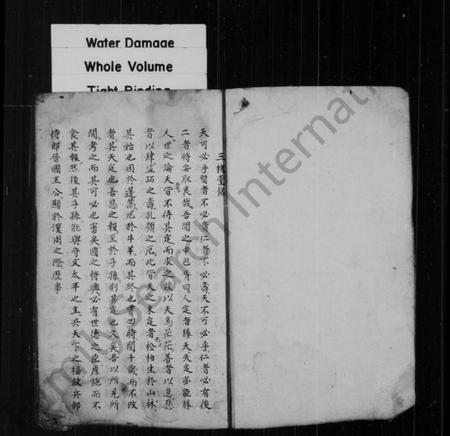 Water Damage
Whole Volume
Tight Binding
三槐堂銘
天可必乎賢者不必貴仁者不必壽天不可必乎仁者必有後
二者將安取衷哉吾聞之申包胥曰人定者勝天天定亦能勝
人世之論天者皆不待其定而求之故以天為茫茫善者以怠惡
者以肆盜跖之壽孔顏之厄此皆天之未定者松柏生於山林
其始也困於蓬蒿厄於牛羊而其終也貫四時閱千歲而不改
者其天定也善惡之報至於子孫則其定也久矣吾以所見所
聞考之而其可必也審矣國之將興必有世德之臣厚施而不
食其報然後其子孫能與守文太平之主共天下之福故兵部
侍郎晉國王公顯於漢周之際歷事
FamilySearch International